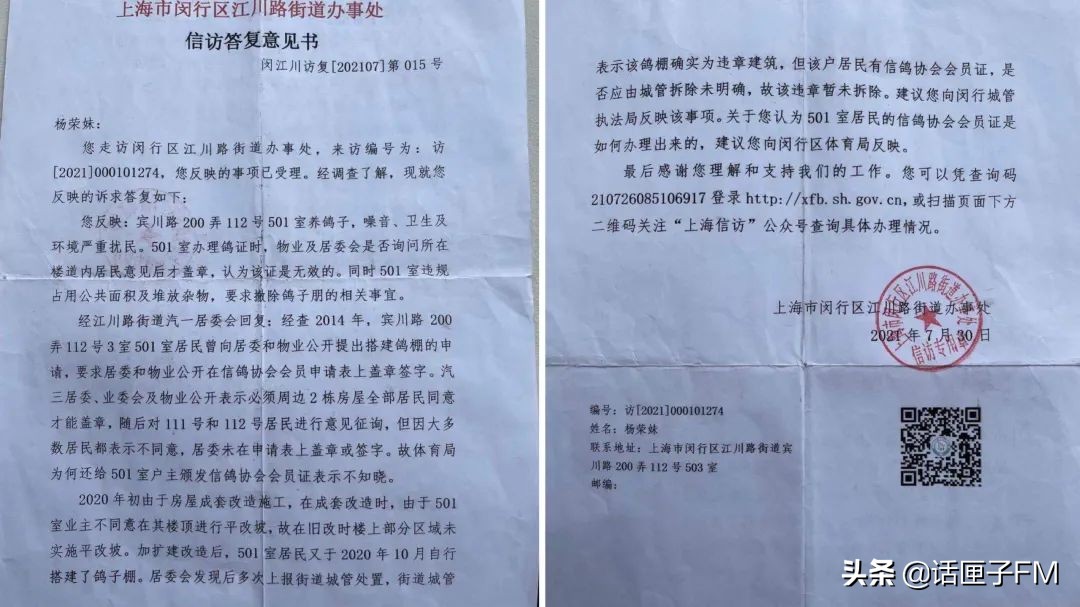 上海市闵行区江川路街道办事处
信访答复意见书
闵江川访复[202107]第 015 号
杨荣妹：
您走访闵行区江川路街道办事处，来访编号为：访
[2021]000101274，您反映的事项已受理。经调查了解，现就您
反映的诉求答复如下：
您反映：宾川路 200 弄 112 号 501 室养鸽子，噪音、卫生及
环境严重扰民。501 室办理鸽证时，物业及居委会是否询问所在
楼道内居民意见后才盖章，认为该证是无效的。同时 501 室违规
占用公共面积及堆放杂物，要求撤除鸽子朋的相关事宜。
经江川路街道汽一居委会回复：经查 2014 年，宾川路 200
弄 112 号 3 室 501 室居民曾向居委和物业公开提出搭建鸽棚的申
请，要求居委和物业公开在信鸽协会会员申请表上盖章签字。汽
三居委、业委会及物业公开表示必须周边 2 栋房屋全部居民同意
才能盖章，随后对 111 号和 112 号居民进行意见征询，但因大多
数居民都表示不同意，居委未在申请表上盖章或签字。故体育局
为何还给 501 室户主颁发信鸽协会会员证表示不知晓。
2020 年初由于房屋成套改造施工，在成套改造时，由于 501
室业主不同意在其楼顶进行平改坡，故在旧改时楼上部分区域未
实施平改坡。加扩建改造后，501 室居民又于 2020 年 10 月自行
搭建了鸽子棚。居委会发现后多次上报街道城管处置，街道城管
表示该鸽棚确实为违章建筑，但该户居民有信鸽协会会员证，是
否应由城管拆除未明确，故该违章暂未拆除。建议您向闵行城管
执法局反映该事项。关于您认为 501 室居民的信鸽协会会员证是
如何办理出来的，建议您向闵行区体育局反映。
最后感谢您理解和支持我们的工作。您可以凭查询码
210726085106917 登录 http://xfb.sh.gov.cn，或扫描页面下方
二维码关注“上海信访”公众号查询具体办理情况。
上海市闵行区江川路街道办事处
2021 年 7 月 30 日
信访专用章
编号：访[2021]000101274
姓名：杨荣妹
联系地址：上海市闵行区江川路街道宾
川路 200 弄 112 号 503 室
邮编：
头条 @话匣子FM